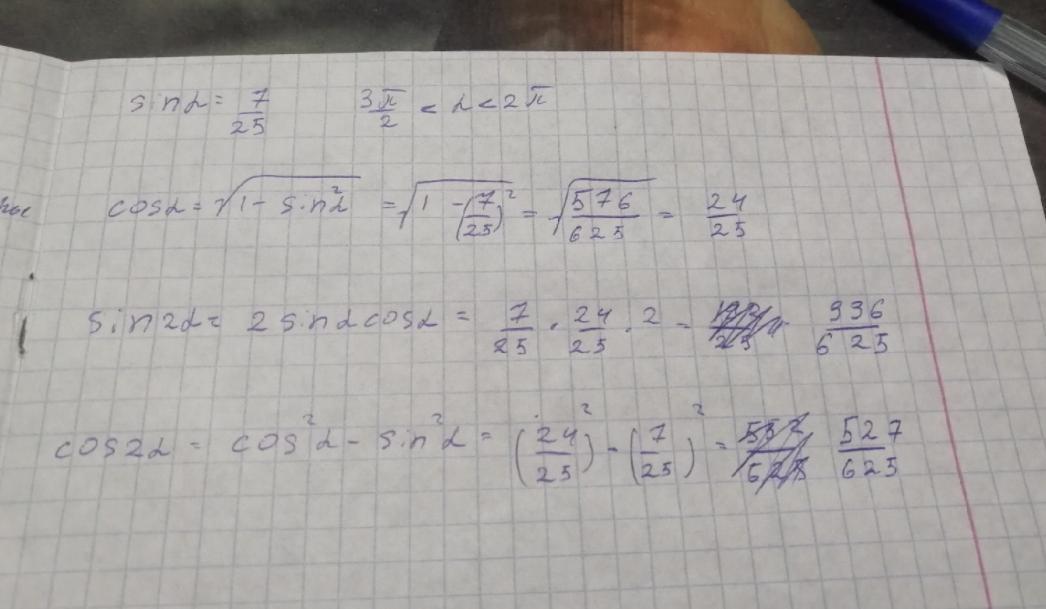 sinα = 7/25   3π/2 < α < 2π
cosα = √(1 - sin²α) = √(1 - (7/25)²) = √(576/625) = 24/25
sin2α = 2 sinα cosα = 7/25 · 24/25 · 2 = 936/625
cos2α = cos²α - sin²α = (24/25)² - (7/25)² = 527/625